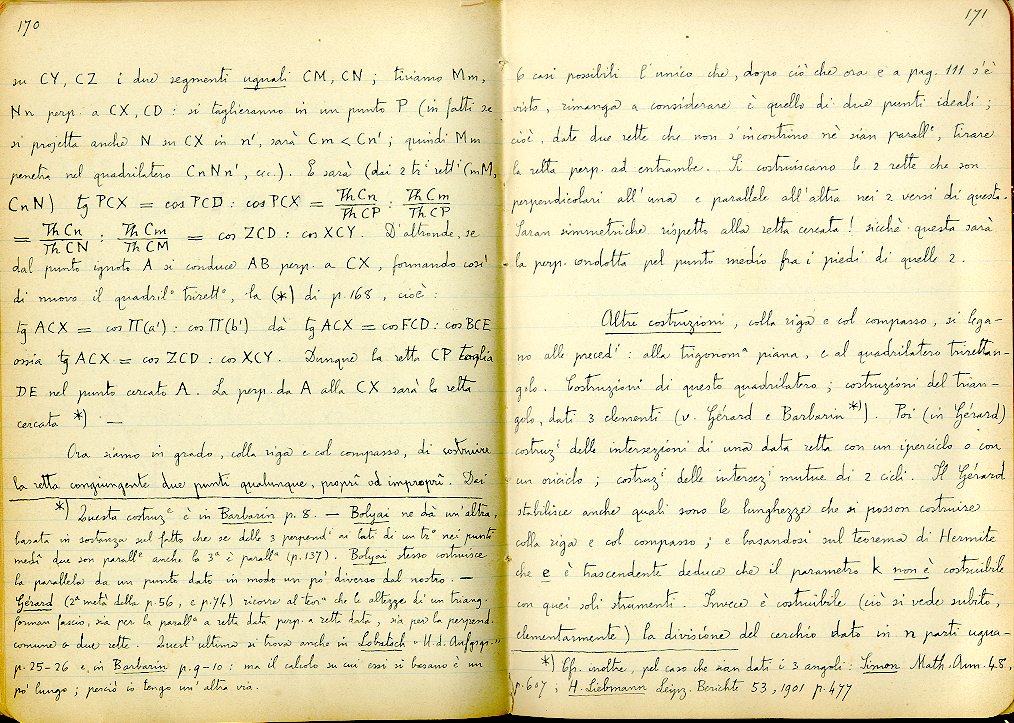 170
su CY, CZ i due segmenti uguali CM, CN ; tiriamo Mm,
Nn perp. a CX, CD : si taglieranno in un punto P (in fatti se
si projetta anche N su CX in n', sarà Cm < Cn' ; quindi Mm
penetra nel quadrilatero CnNn', ecc.). E sarà (dai 2 tri rett.i CmM,
CnN) tg PCX = cos PCD : cos PCX = Th Cn / Th CP : Th Cm / Th CP
= Th Cn / Th CN : Th Cm / Th CM = cos ZCD : cos XCY. D'altronde, se
dal punto ignoto A si conduce AB perp. a CX, formando così
di nuovo il quadril° trirett°, la (*) di p. 168, cioè :
tg ACX = cos Π(a') : cos Π(b') dà tg ACX = cos FCD : cos BCE
ossia tg ACX = cos ZCD : cos XCY. Dunque la retta CP taglia
DE nel punto cercato A. La perp. da A alla CX sarà la retta
cercata *) —
Ora siamo in grado, colla riga e col compasso, di costruire
la retta congiungente due punti qualunque, proprî od improprî. Dei
*) Questa costruz.e è in Barbarin p. 8. — Bolyai ne dà un'altra,
basata in sostanza sul fatto che se delle 3 perpend.i ai lati di un tr° nei punti
medî due son parall.e anche la 3ª è parall.a (p. 137). Bolyai stesso costruisce
la parallela da un punto dato in modo un po' diverso dal nostro. —
Gérard (2ª metà della p. 56, e p. 74) ricorre al teor.a che le altezze di un triang.
forman fascio, sia per la parall.a a retta data perp. a retta data, sia per la perpend.
comune a due rette. Quest'ultima si trova anche in Lobatsch "U. d. Anfgsgr."
p. 25-26 e in Barbarin p. 9-10 : ma il calcolo su cui essi si basano è un
po' lungo ; perciò io tengo un'altra via.
171
6 casi possibili l'unico che, dopo ciò che ora e a pag. 111 s'è
visto, rimanga a considerare è quello di due punti ideali ;
cioè, date due rette che non s'incontrino nè sian parall.e, tirare
la retta perp. ad entrambe. Si costruiscano le 2 rette che son
perpendicolari all'una e parallele all'altra nei 2 versi di questa.
Saran simmetriche rispetto alla retta cercata ! sicchè questa sarà
la perp. condotta pel punto medio fra i piedi di quelle 2.
Altre costruzioni, colla riga e col compasso, si lega-
no alle preced.i : alla trigonom.a piana, e al quadrilatero trirettan-
golo. Costruzioni di questo quadrilatero ; costruzioni del trian-
golo, dati 3 elementi (v. Gérard e Barbarin *)). Poi (in Gérard)
costruz.i delle intersezioni di una data retta con un iperciclo o con
un oriciclo ; costruz.i delle intersez.i mutue di 2 cicli. Il Gérard
stabilisce anche quali sono le lunghezze che si posson costruire
colla riga e col compasso ; e basandosi sul teorema di Hermite
che e è trascendente deduce che il parametro k non è costruibile
con quei soli strumenti. Invece è costruibile (ciò si vede subito,
elementarmente) la divisione del cerchio dato in n parti ugua-
*) Cfr. inoltre, pel caso che sian dati i 3 angoli : Simon Math. Ann. 48,
p. 607 ; H. Liebmann Leipz. Berichte 53, 1901 p. 477